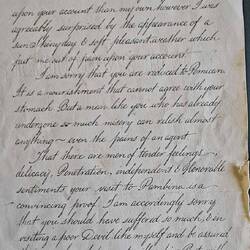 upon your account than my own, however I was
agreeably surprised by the appearance of a
sun shiny day & soft pleasant weather which
put me out of pain upon your account.
I am sorry that you are reduced to Pemican
It is a nourishment that cannot agree with your
stomach But a man like you who has already
undergone so much misery can relish almost
anything ~ even the pains of an agent
That there are men of tender feelings,
delicacy, Penitration, independent & Honorable
sentiments your visit to Pambina is a
convincing proof. I am accordingly sorry
that you should have suffered so much, in
visiting a poor Devil like myself and be assured